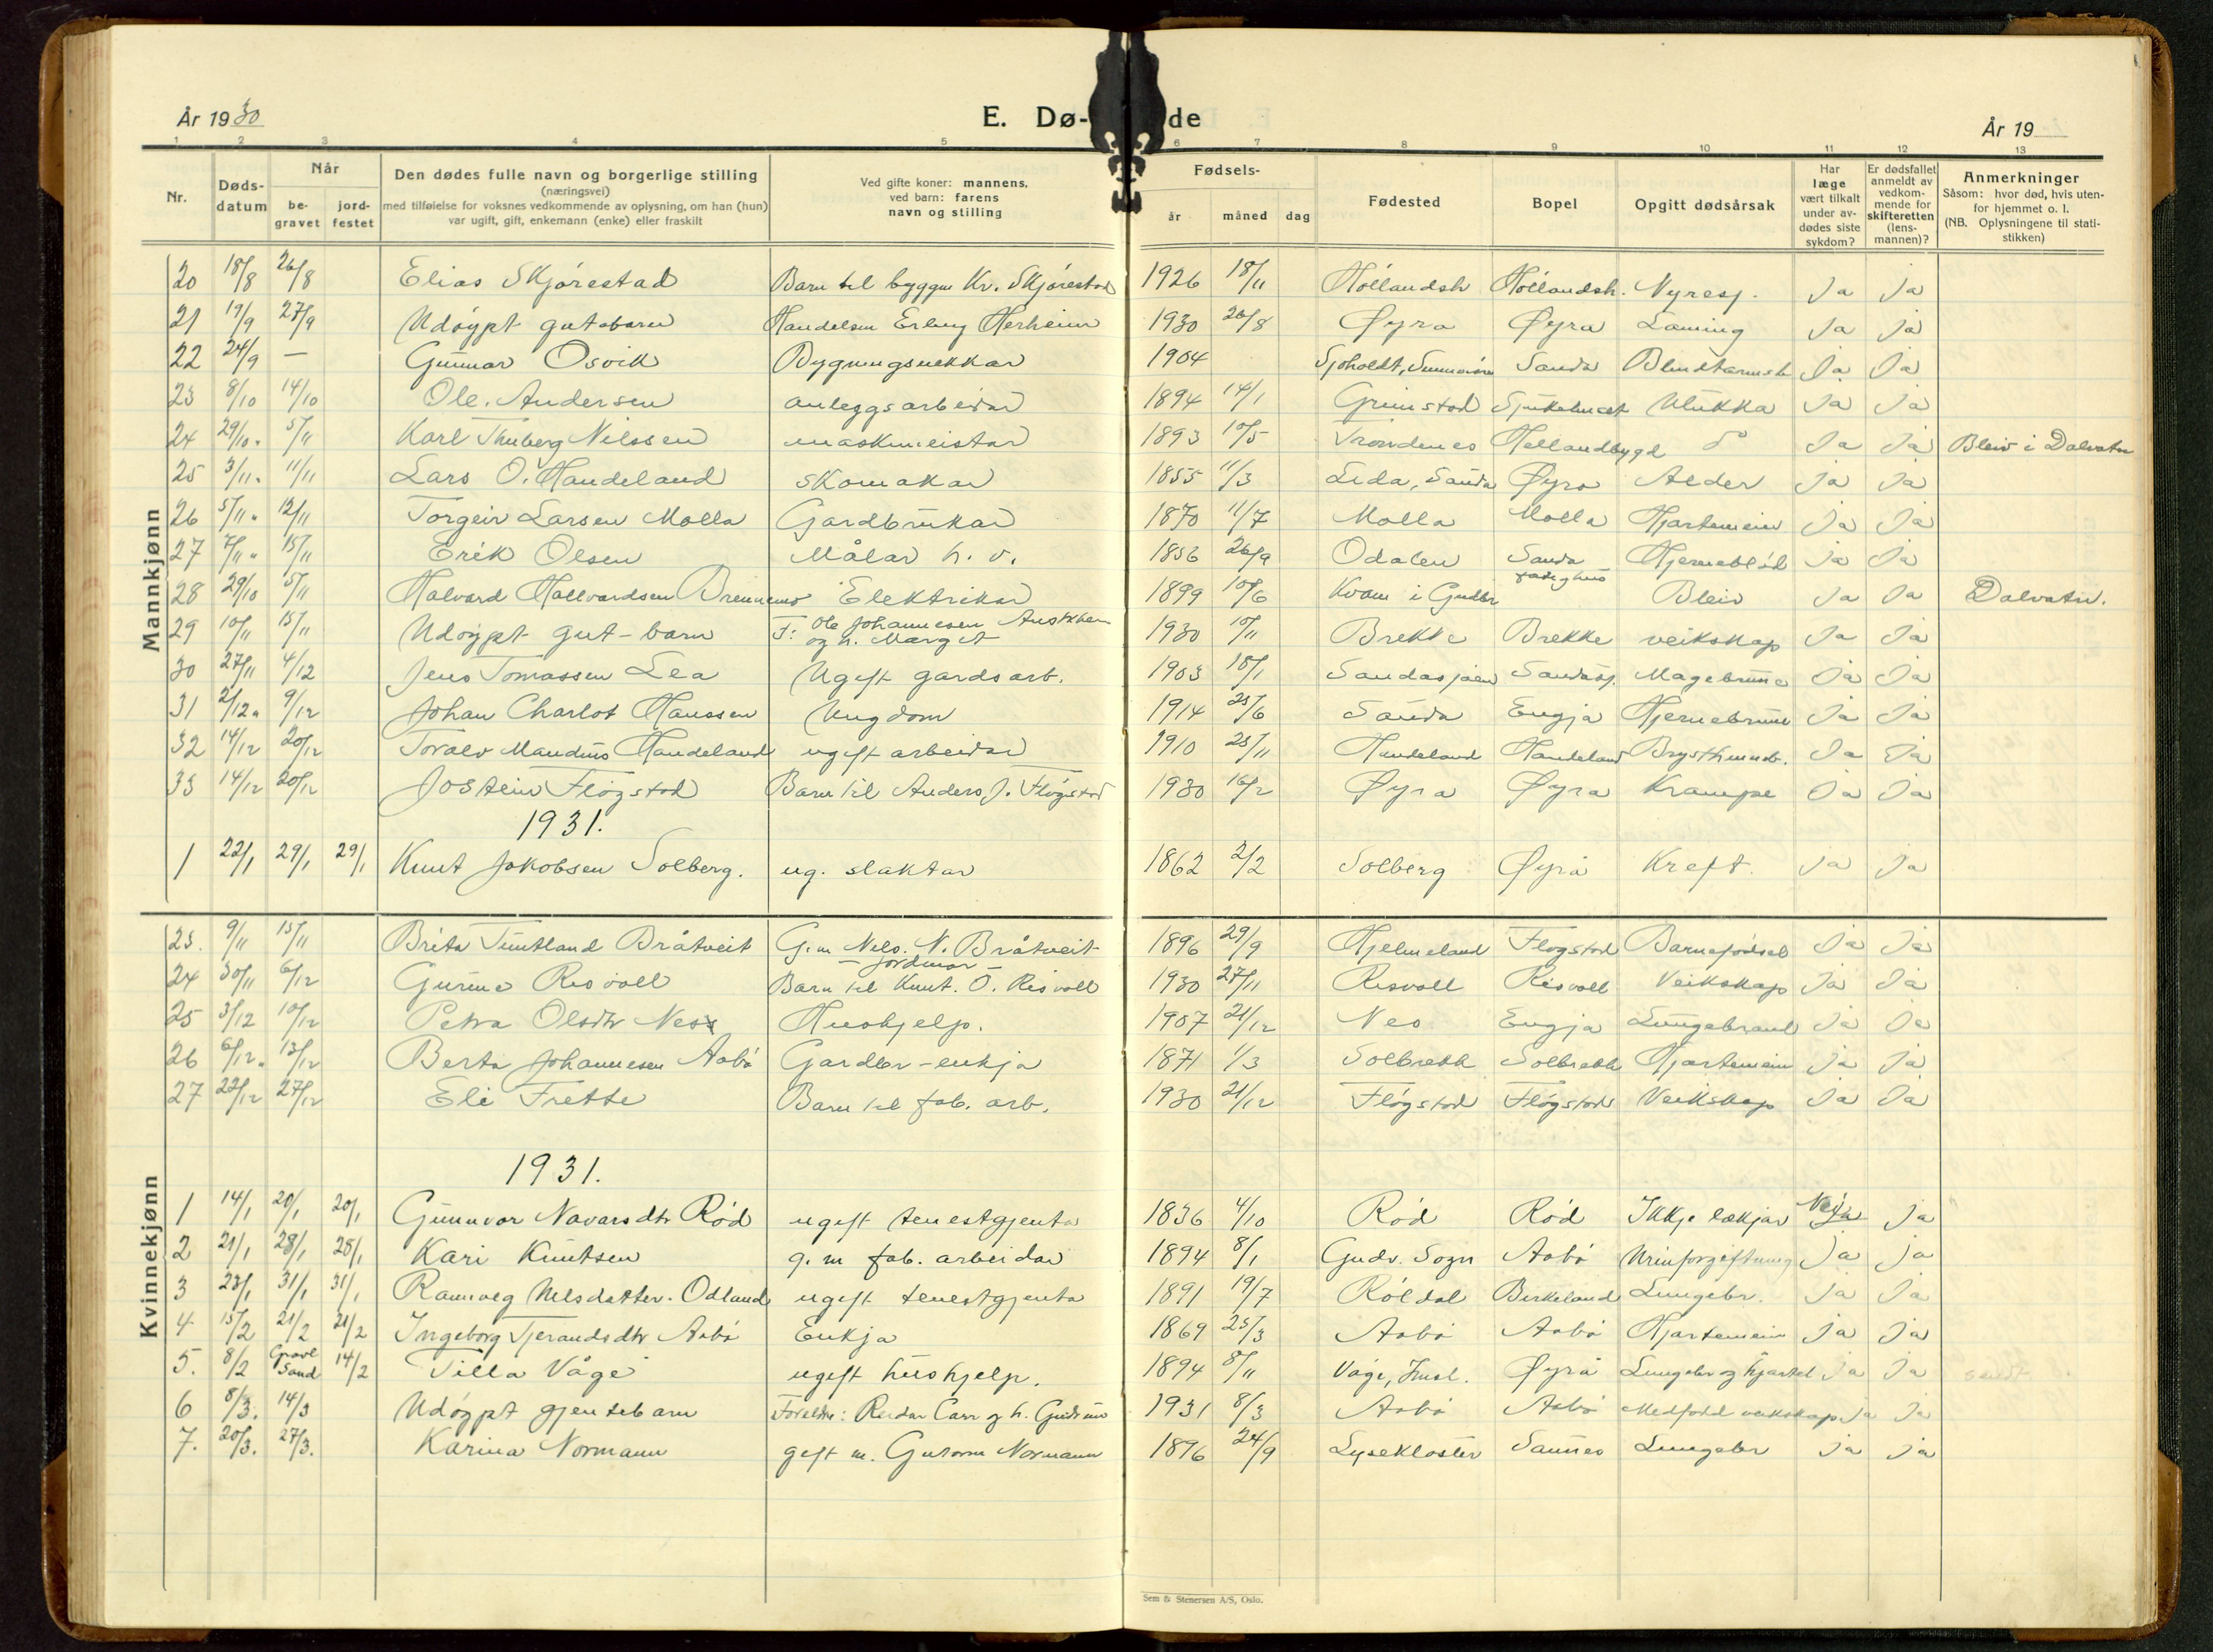 År 1930
E. Dø-
de
År 19
1 2 3 4 5 6 7 8 9 10 11 12 13
Nr.
Døds-
datum
Når
be-
gravet
jord-
festet
Den dødes fulle navn og borgerlige stilling
(næringsvei)
med tilføielse for voksnes vedkommende av oplysning, om han (hun)
var ugift, gift, enkemann (enke) eller fraskilt
Ved gifte koner: mannens,
ved barn: farens
navn og stilling
Fødsels-
år måned dag
Fødested
Bopel
Opgitt dødsårsak
Har
læge
vært tilkalt
under av-
dødes siste
sykdom?
Er dødsfallet
anmeldt av
vedkom-
mende for
skifteretten
(lens-
mannen)?
Anmerkninger
Såsom: hvor død, hvis uten-
for hjemmet o. l.
(NB. Oplysningene til stati-
stikken)
Mannkjønn
20 18/8 26/8 Elias Skjórestad Barn til byggm Kr. Skjórestad 1926 18/11 Hóllandsh Hóllandsh. Nyresj. Ja Ja
21 19/9 27/9 Udóypt gutebarn Handelsm Erling Herheim 1930 26/8 Øyra Øyra Laming Ja Ja
22 24/9 — Gunnar Osvik Bygningsnekkar 1904 Sjoholdt, Sunnmöre Sanda Blindtarmsb Ja Ja
23 8/10 14/10 Ole. Andersen anleggsarbeidar 1894 14/1 Grimstad Sjukehuset Ulukka Ja Ja
24 29/10. 5/11 Karl Thuberg Nilssen maskinmeistar 1893 10/5 Trondenes Hellandbygd Ja Ja Bleiv i Dalvatn
25 3/11. 11/11 Lars O. Handeland skomakar 1855 11/3 Lida, Sauda Øyra Alder Ja Ja
26 5/11. 12/11 Torgeir Larsen Molla Gardbrukar 1870 11/7 Molla Molla Hjartemein Ja Ja
27 7/11. 15/11 Erik Olsen Målar h. v. 1856 26/9 Odalen Sauda Hjerneblód Ja Ja
28 29/10 5/11 Halvard Hallvardsen Brennemo Elektrikar 1899 10/6 Kvam i Gudbr Bleiv Ja Ja Dalvatn.
29 10/11 15/11 Udóypt gut-barn F: Ole Johannesen
og h. Marget 1930 10/11 Brekke Brekke veikskap Ja Ja
30 27/11 4/12 Jens Tomassen Lea Ugift gardsarb. 1903 18/1 Saudasjøen Saudasj. Magebrune Ja Ja
31 2/12. 9/12 Johan Charlot Hanssen Ungdom 1914 25/6 Sauda Engja Hjernebrune Ja Ja
32 14/12 20/12 Toralv Mandius Handeland ugift arbeidar 1910 25/11 Handeland Handeland Brysthinneb. Ja Ja
33 14/12 20/12 Jostein Flógstad Barn til Anders J. Flógstad 1930 16/2 Øyra Øyra Krampe Ja Ja
1931.
1 22/1 29/1 29/1 Knut Jakobsen Solberg. ug. slaktar 1862 2/2 Solberg Øyra Kreft. Ja Ja
Kvinnekjønn
23. 9/11 15/11 Brita Tuntland Bråtveit G. m Nels. N. Bråtveit
— jordmor — 1896 29/9 Hjelmeland Flogstad Barnefódsel Ja Ja
24 30/11 6/12 Gurine Risvoll Barn til Knut. O. Risvoll 1930 27/11 Risvoll Risvoll Veikskap Ja Ja
25 3/12 10/12 Petra Olsdtr Ness Hushjelp. 1907 21/12 Nes Engja Lungebrand Ja Ja
26 6/12. 13/12 Berta Johannesen Aabó Gardbr-enkja 1871 1/3 Solbrekk Solbrekk Hjartemein Ja Ja
27 22/12 27/12 Eli Frette Barn til fab. arb. 1930 21/12 Flógstad Flógstad Veikskap Ja Ja
1931.
1 14/1 20/1 20/1 Gunnvor Navarsdtr Ród ugift tenestgjenta 1836 4/10 Ród Ród Ikkje lækjar Nei Ja
2 21/1 28/1 28/1 Kari Knutsen g. m fab. arbeidar 1894 8/1 Gudv. Sogn Aabó Urinforgiftning Ja ja
3 23/1 31/1 31/1 Rannveg Nilsdatter. Odland ugift tenestgjenta 1891 19/7 Róldal Birkeland Lungebr. Ja Ja
4 15/2 21/2 21/2 Ingeborg Tjerandsdtr Aabó Enkja 1869 25/3 Aabó Aabó Hjartemein Ja Ja
5. 8/2 Gravl Sand 14/2 Tilla Våge ugift hushjelp. 1894 8/11 Våge, Øyra Lungebr og hjartel Ja Ja sendt
6 8/3. 14/3 Udóypt gjentebarn Foreldre: Reidar Carr og h. Gudrun 1931 8/3 Aabó Aabó Medfødd veikskap Ja Ja
7. 20/3. 27/3. Karina Normann gift m. Guttorm Normann 1896 24/9 Lysekloster Saunes Lungebr Ja Ja
Sem & Stenersen A/S, Oslo.